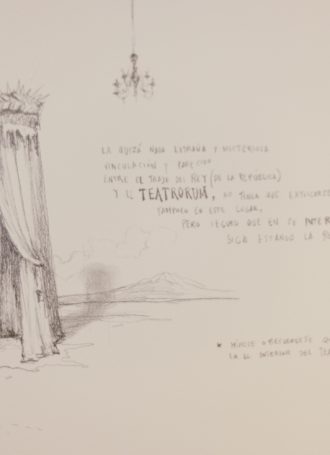 LA QUIZÁ NADA EXTRAÑA Y MISTERIOSA
VINCULACIÓN Y PARECIDO
ENTRE EL TRAJE DEL REY (DE LA REPÚBLICA)
Y EL TEATRORUM, NO TENÍA QUE EXPLICARSE
TAMPOCO EN ESTE LUGAR,
PERO SEGURO QUE EN SU INTER
SIGA ESTANDO LA
* 
LA EL INTERIOR DEL